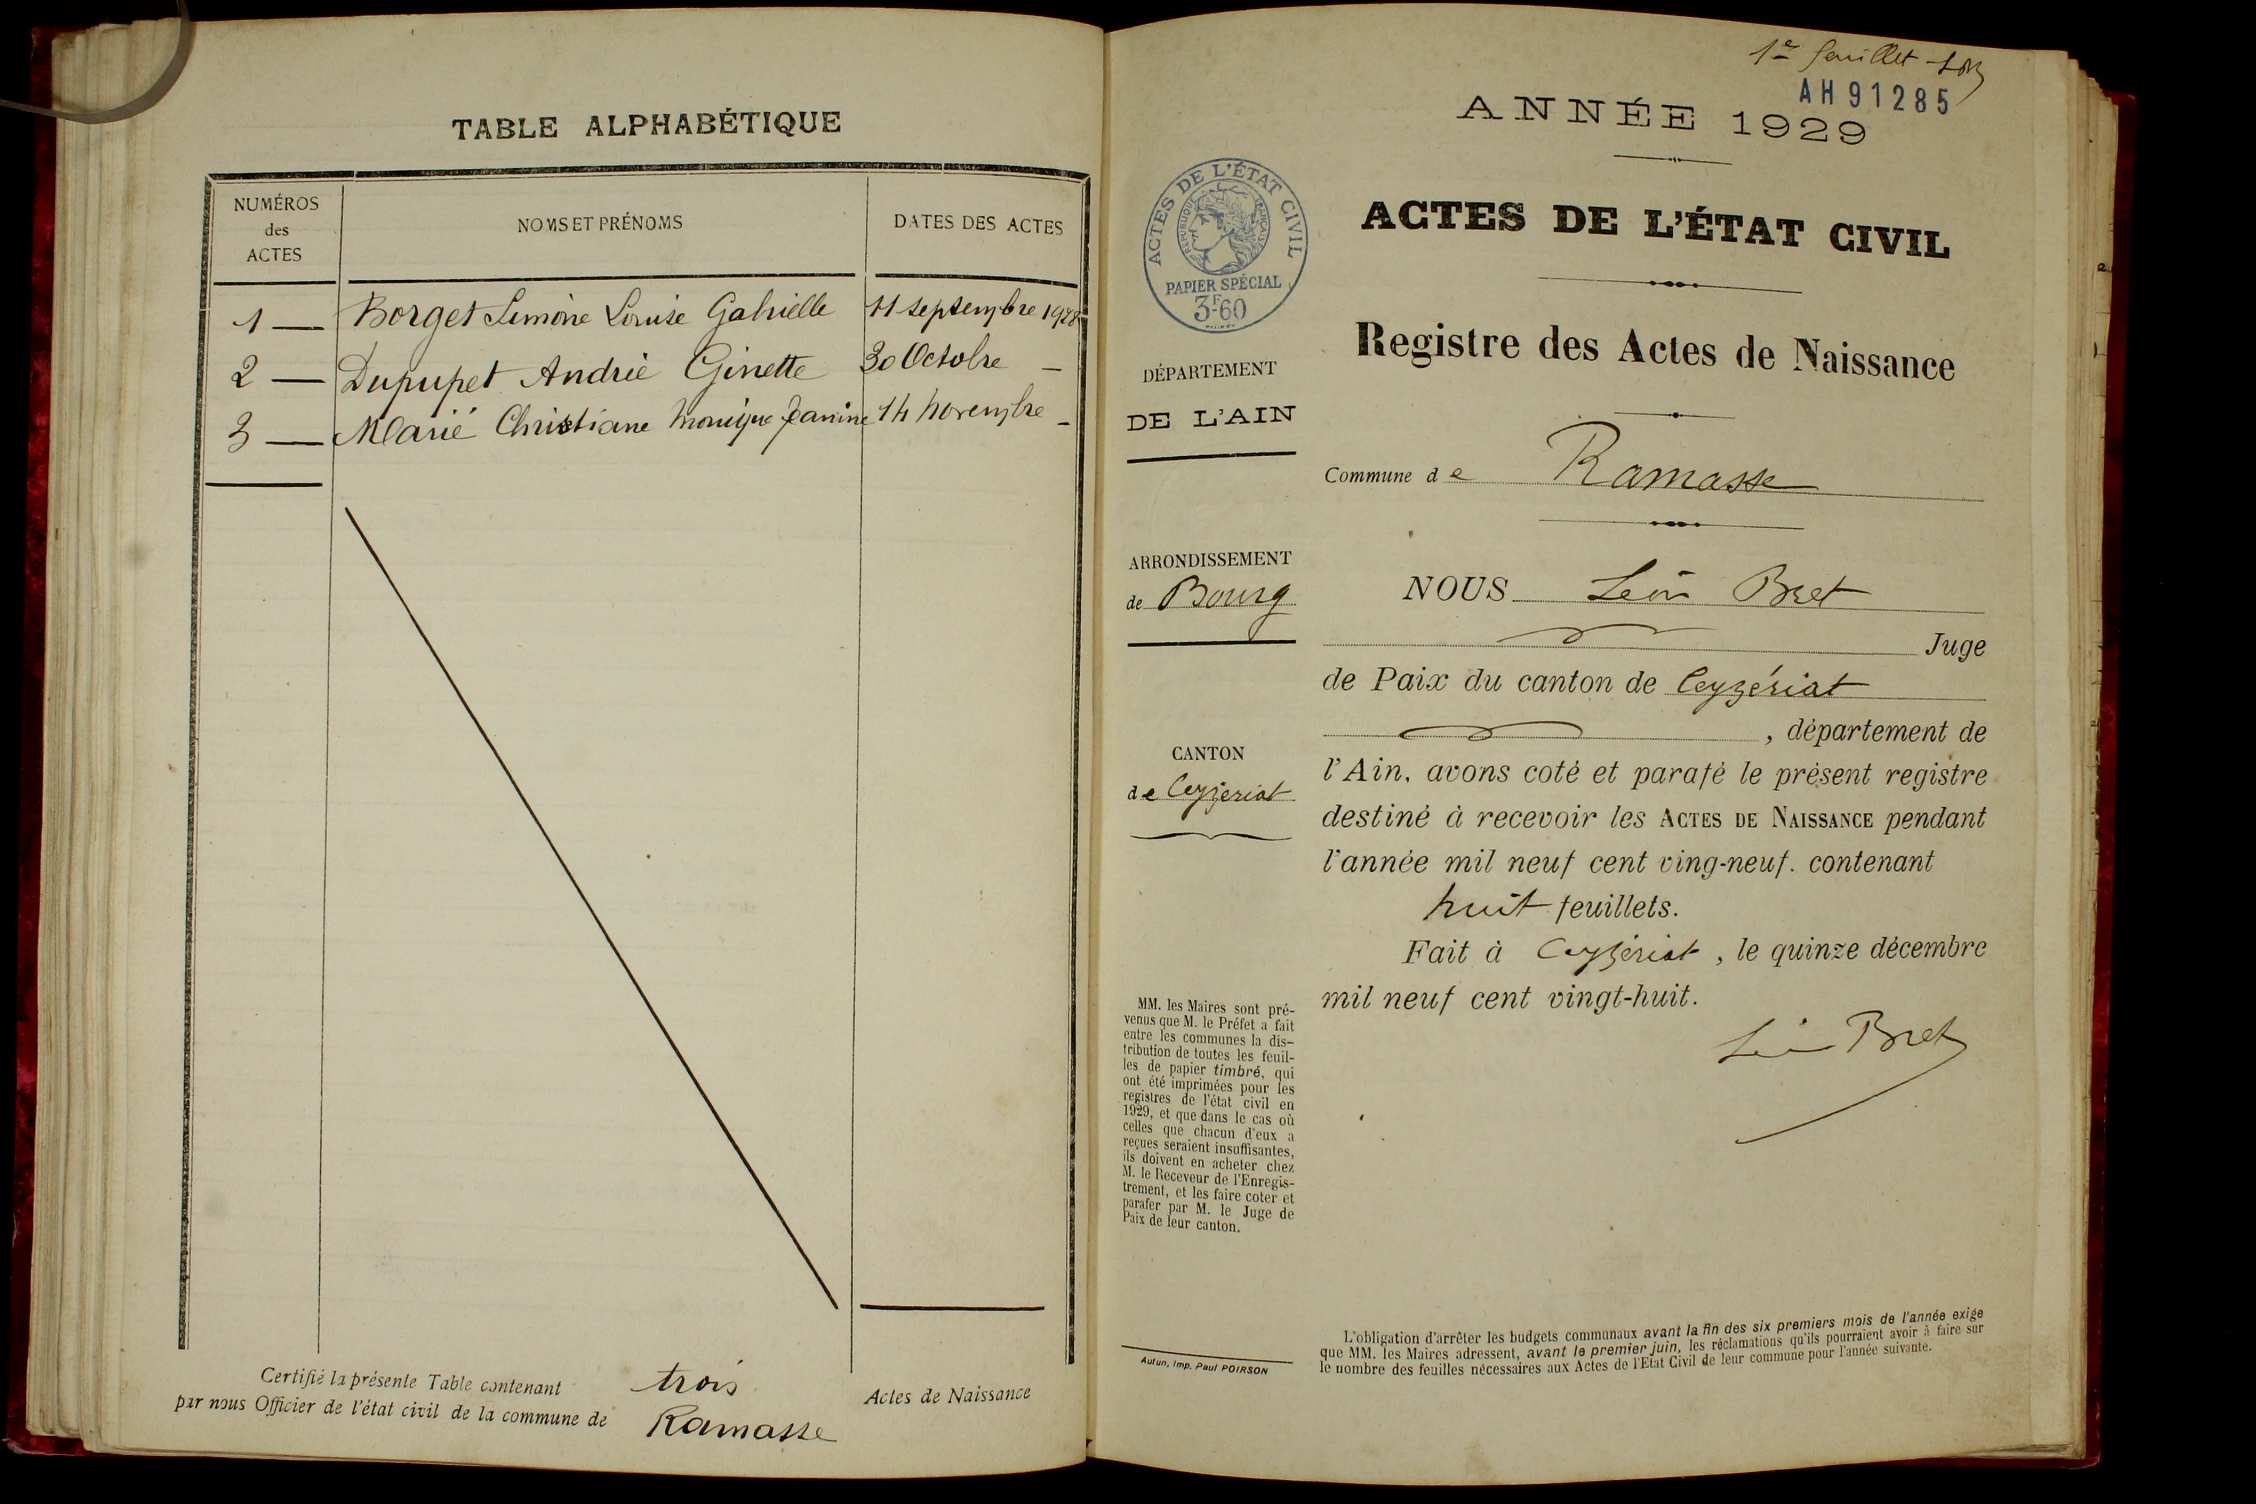 TABLE ALPHABÉTIQUE
NUMÉROS
des
ACTES
NOMS ET PRÉNOMS
DATES DES ACTES
1 — Borget Simone Louise Gabrielle 11 septembre 1928
2 — Dupupet Andrée Ginette 30 Octobre —
3 — Marié Christiane Monique Jeanine 14 novembre —
Certifié la présente Table contenant trois Actes de Naissance
par nous Officier de l'état civil de la commune de Ramasse
1er feuillet
AH91285
ANNÉE 1929
ACTES DE L'ÉTAT CIVIL
RÉPUBLIQUE FRANÇAISE
PAPIER SPÉCIAL
3F60
ACTES DE L'ÉTAT CIVIL
Registre des Actes de Naissance
DÉPARTEMENT
DE L'AIN
Commune de Ramasse
ARRONDISSEMENT
de Bourg
NOUS Léon Bret
Juge
de Paix du canton de Ceyzériat
, département de
CANTON
de Ceyzeriat
l'Ain, avons coté et parafé le présent registre
destiné à recevoir les ACTES DE NAISSANCE pendant
l'année mil neuf cent ving-neuf. contenant
huit feuillets.
Fait à Ceyzériat, le quinze décembre
mil neuf cent vingt-huit.
Léon Bret
MM. les Maires sont pré-
venus que M. le Préfet a fait
entre les communes la dis-
tribution de toutes les feuil-
les de papier timbré, qui
ont été imprimées pour les
registres de l'état civil en
1929, et que dans le cas où
celles que chacun d'eux a
reçues seraient insuffisantes,
ils doivent en acheter chez
M. le Receveur de l'Enregis-
trement, et les faire coter et
parafer par M. le Juge de
Paix de leur canton.
Autun, Imp. Paul POIRSON
L'obligation d'arrêter les budgets communaux avant la fin des six premiers mois de l'année exige
que MM. les Maires adressent, avant le premier juin, les réclamations qu'ils pourraient avoir à faire sur
le nombre des feuilles nécessaires aux Actes de l'Etat Civil de leur commune pour l'année suivante.